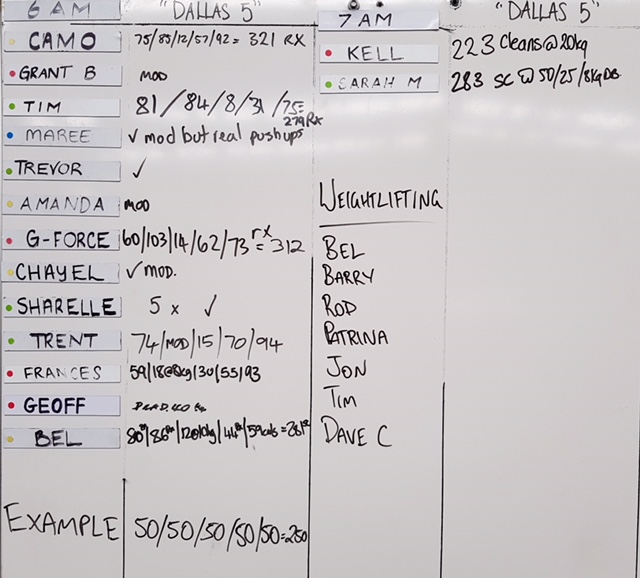 6 AM "DALLAS 5"
CAMO 75/85/12/57/92 = 321 RX
GRANT B MOD
TIM 81/84/8/31/75=
279 Rx
MAREE ✓ mod but real pushups
TREVOR ✓
AMANDA MOD
G-FORCE 60/103/14/62/73 rx = 312
CHAYEL ✓ MOD.
SHARELLE 5 x ✓
TRENT 74/MOD/15/70/94
FRANCES 59/18@8kg/30/55/93
GEOFF
BEL
EXAMPLE 50/50/50/50/50=250
7 AM "DALLAS 5"
KELL 223 Cleans@20kg
SARAH M 283 SC @ 50/25/8kg DB
WEIGHTLIFTING
BEL
BARRY
ROD
PATRINA
JON
TIM
DAVE C